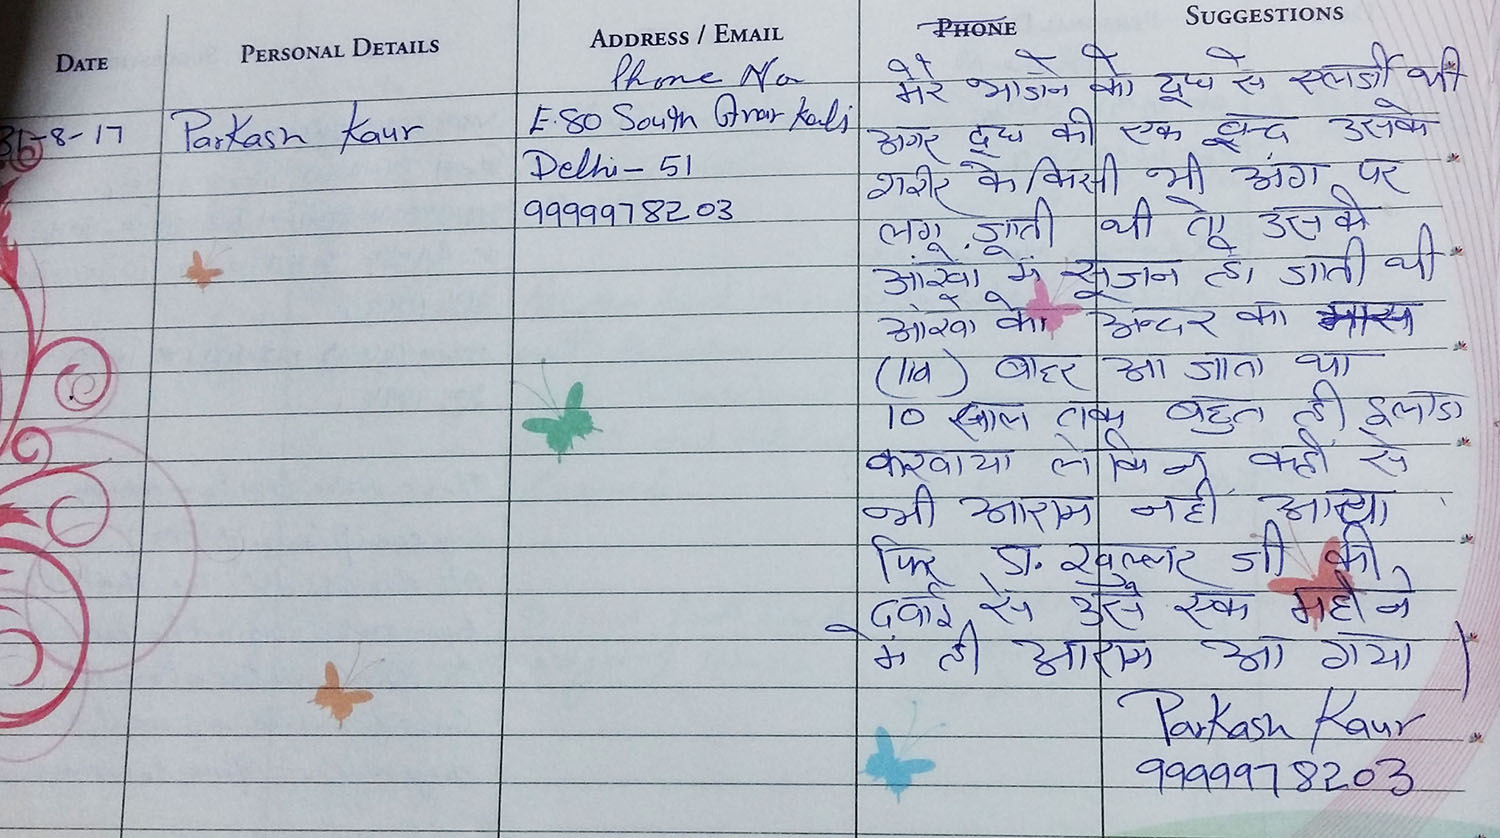 DATE PERSONAL DETAILS ADDRESS / EMAIL PHONE SUGGESTIONS
Phone No
31-8-17 Parkash Kaur E-80 South Anar Kali
Delhi - 51
9999978203
मेरे भांजे को दूध से एलर्जी थी
अगर दूध की एक बून्द उसके
शरीर के किसी भी अंग पर
लग जाती थी तो उसके
आंखो में सूजन हो जाती थी
आंखो के अन्दर का मास
(lid) बाहर आ जाता था
10 साल तक बहुत ही इलाज
करवाया लेकिन कहीं से
भी आराम नही आया
फिर डा. खुल्लर जी की
दवाई से उसे एक महीने
में ही आराम आ गया।
Parkash Kaur
9999978203